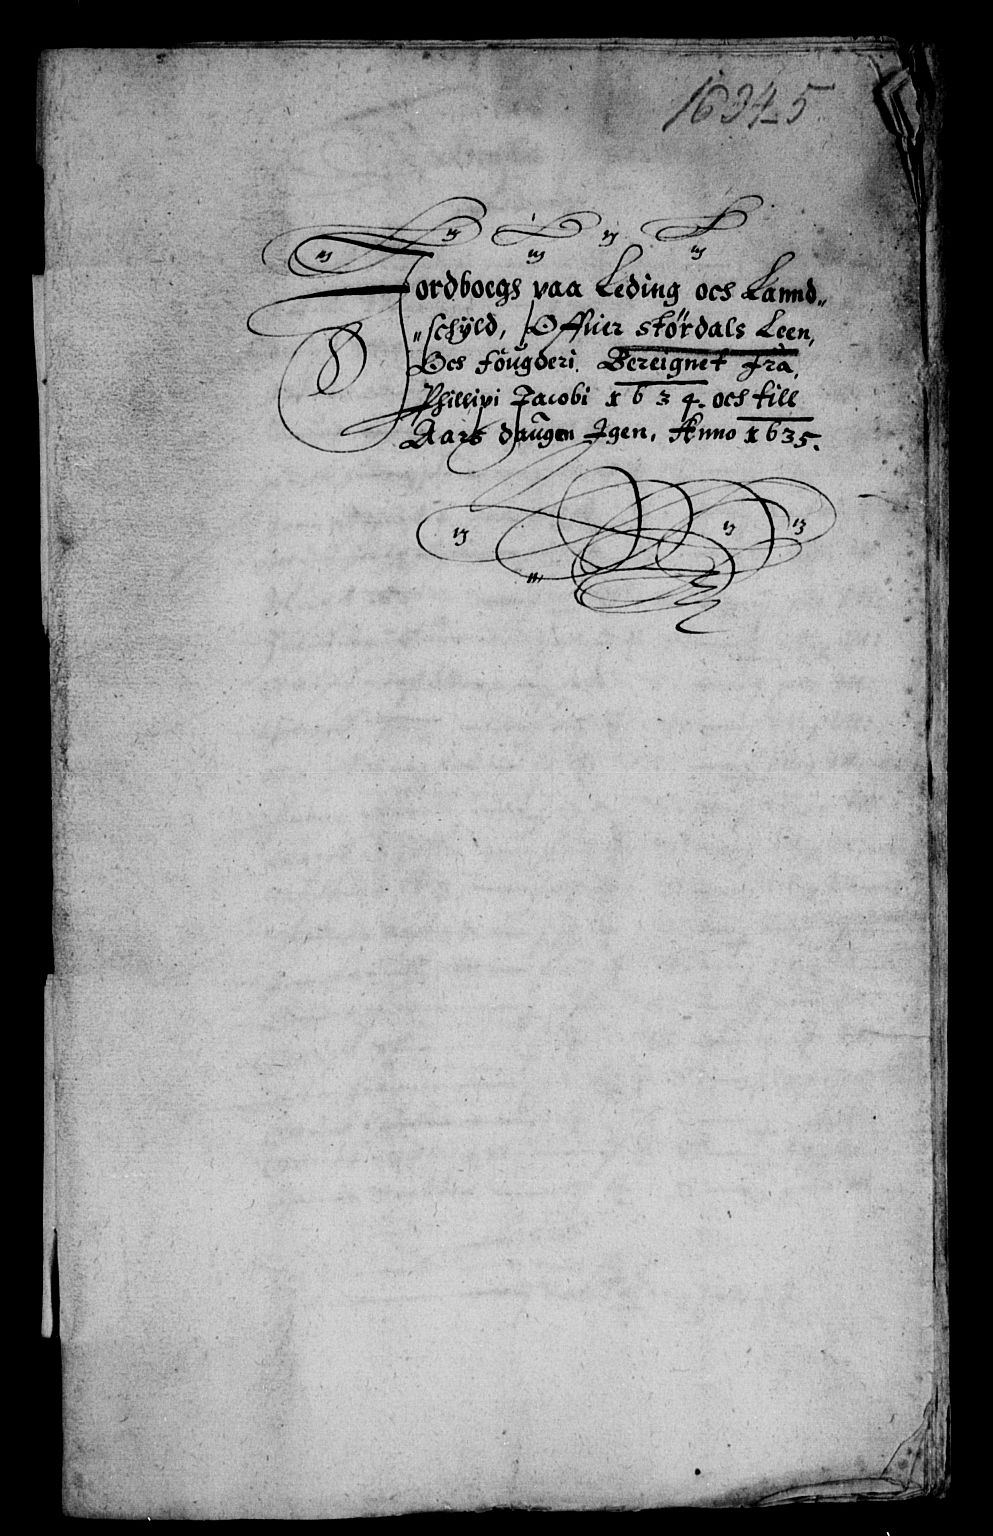 1634-5
Jordboegs paa Leding och Lannd„
„schÿld, Offuer Stördals Leen,
Och fougderi. Bereignet fra,
Phillipi Jacobi 1634. och till
Aars daugen Igen, Anno 1635.